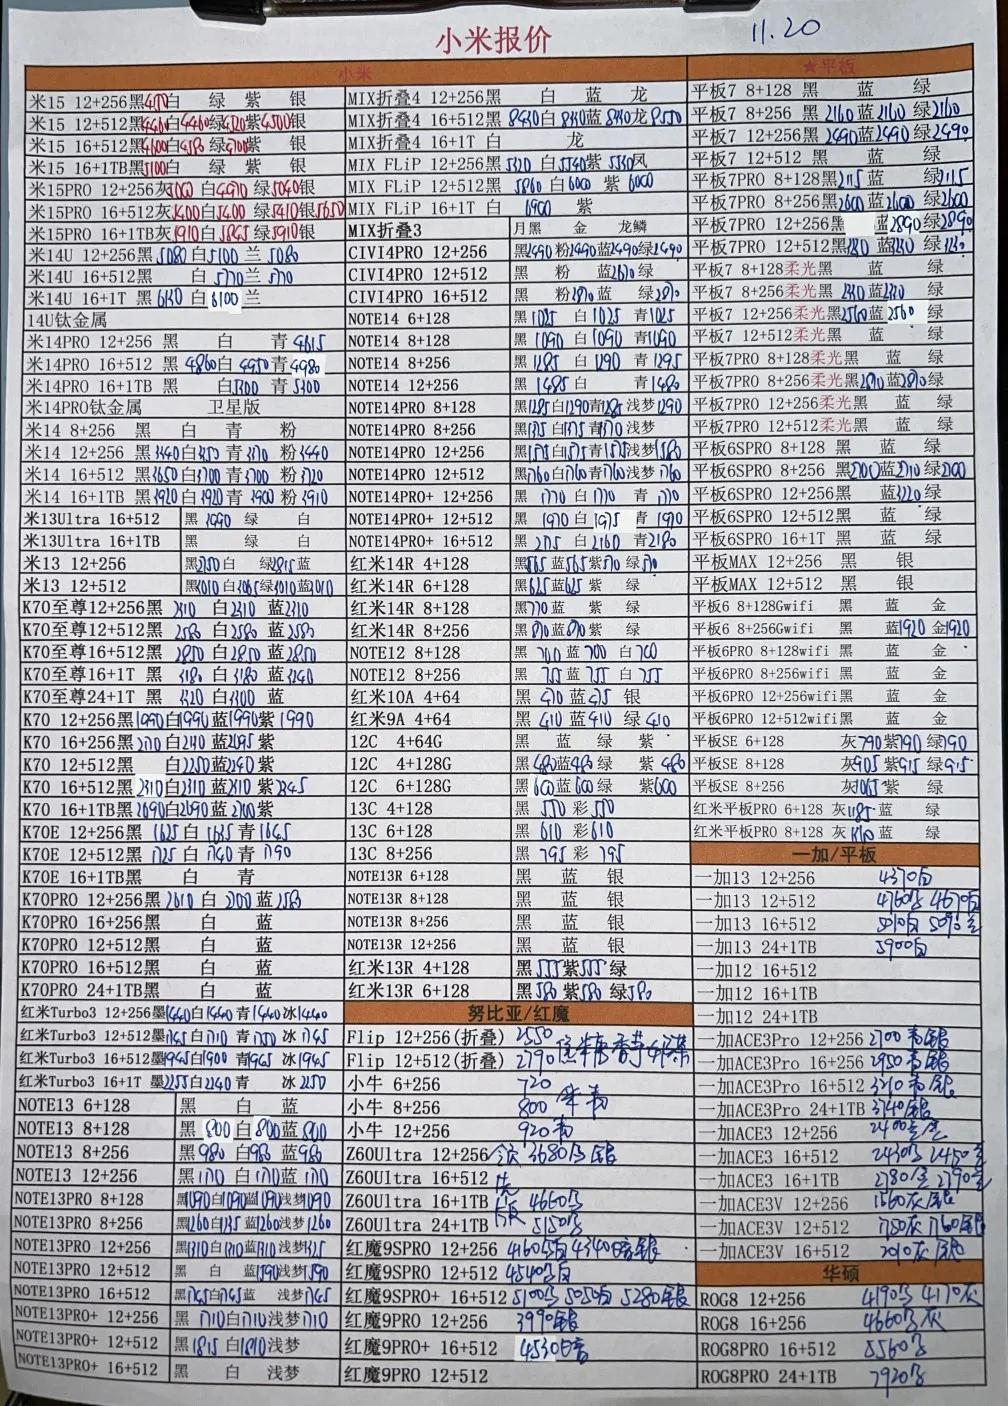 11.20
小米报价
小米
米15 12+256黑 白 绿 紫 银
米15 12+512黑4460白4460绿 紫4500银
米15 16+512黑4600白 绿4700紫 银
米15 16+1TB黑5100白 绿 紫 银
米15PRO 12+256灰 白4970 绿5040银
米15PRO 16+512灰5400白5400 绿5410银5650
米15PRO 16+1TB灰5910白 绿5910银
米14U 12+256黑5080白5100 兰5080
米14U 16+512黑 白5770 兰5770
米14U 16+1T 黑6130白6100兰
14U钛金属
米14PRO 12+256 黑 白 青4615
米14PRO 16+512 黑4860白4950青4980
米14PRO 16+1TB 黑 白5300 青5300
米14PRO钛金属 卫星版
米14 8+256 黑 白 青 粉
米14 12+256 黑3440白 青 粉3440
米14 16+512 黑3650白3700 青3700 粉3720
米14 16+1TB 黑3920白3920青3900 粉3910
米13Ultra 16+512 黑3990 绿 白
米13Ultra 16+1TB 黑 绿 白
米13 12+256 黑2750白 绿 蓝
米13 12+512 黑3010白 绿3010蓝3010
K70至尊12+256黑2310 白2310 蓝2310
K70至尊12+512黑2580 白2580 蓝2580
K70至尊16+512黑2850 白2850 蓝2850
K70至尊16+1T 黑3180 白3180 蓝3240
K70至尊24+1T 黑3320 白3300 蓝
K70 12+256黑1990白1990蓝1990紫1990
K70 16+256黑2110白2140蓝2095紫
K70 12+512黑 白2250蓝2240紫
K70 16+512黑2310白2310蓝2310紫2345
K70 16+1TB黑2690白2690蓝2700紫
K70E 12+256黑1625白1635青1645
K70E 12+512黑1725白1740青1790
K70E 16+1TB黑 白 青
K70PRO 12+256黑2610 白2700蓝
K70PRO 16+256黑 白 蓝
K70PRO 12+512黑 白 蓝
K70PRO 16+512黑 白 蓝
K70PRO 24+1TB黑 白 蓝
红米Turbo3 12+256墨1440白1440青1440冰1440
红米Turbo3 12+512墨1745白1710青1750冰1745
红米Turbo3 16+512墨1945白1900青1965冰1945
红米Turbo3 16+1T 墨2255白2240青 冰2250
NOTE13 6+128 黑 白 蓝
NOTE13 8+128 黑800白800蓝800
NOTE13 8+256 黑980白980蓝980
NOTE13 12+256 黑1170白1170蓝1170
NOTE13PRO 8+128 黑1090白1090蓝1090浅梦1090
NOTE13PRO 8+256 黑1260白 蓝1260浅梦1260
NOTE13PRO 12+256 黑1310白1310蓝1310浅梦1325
NOTE13PRO 12+512 黑 白 蓝1590浅梦1590
NOTE13PRO 16+512 黑1745白1745蓝 浅梦1745
NOTE13PRO+ 12+256 黑1710白1710浅梦1710
NOTE13PRO+ 12+512 黑1815白1810浅梦
NOTE13PRO+ 16+512 黑 白 浅梦
MIX折叠4 12+256黑 白 蓝 龙
MIX折叠4 16+512黑8430白8430蓝8430龙8550
MIX折叠4 16+1T 白 龙
MIX FLiP 12+256黑5320白5340紫5330凤
MIX FLiP 12+512黑5860白6000 紫6000
MIX FLiP 16+1T 白6900 紫
MIX折叠3 月黑 金 龙鳞
CIVI4PRO 12+256 黑2490粉2490蓝2490绿2490
CIVI4PRO 12+512 黑 粉 蓝2670绿
CIVI4PRO 16+512 黑 粉2870蓝 绿2870
NOTE14 6+128 黑1025 白1025 青1025
NOTE14 8+128 黑1090 白1090 青1090
NOTE14 8+256 黑1285 白1290 青1295
NOTE14 12+256 黑1485白 青1480
NOTE14PRO 8+128 黑1285白1290青1285浅梦1290
NOTE14PRO 8+256 黑1375白1375青1370浅梦
NOTE14PRO 12+256 黑1575白1575青1575浅梦1580
NOTE14PRO 12+512 黑1760白1760青1760浅梦1760
NOTE14PRO+ 12+256 黑1770白1770 青1770
NOTE14PRO+ 12+512 黑1970白1975 青1970
NOTE14PRO+ 16+512 黑2175白2160 青2180
红米14R 4+128 黑565蓝565紫570绿570
红米14R 6+128 黑625蓝625紫 绿
红米14R 8+128 黑770蓝 紫 绿
红米14R 8+256 黑870蓝870紫 绿
NOTE12 8+128 黑700蓝700白700
NOTE12 8+256 黑755蓝755白755
红米10A 4+64 黑470蓝475银
红米9A 4+64 黑410蓝410绿410
12C 4+64G 黑 蓝 绿 紫
12C 4+128G 黑480蓝480绿 紫480
12C 6+128G 黑600蓝600绿 紫600
13C 4+128 黑550彩550
13C 6+128 黑610彩610
13C 8+256 黑795彩795
NOTE13R 6+128 黑 蓝 银
NOTE13R 8+128 黑 蓝 银
NOTE13R 8+256 黑 蓝 银
NOTE13R 12+256 黑 蓝 银
红米13R 4+128 黑555紫555绿
红米13R 6+128 黑580紫580绿580
努比亚/红魔
Flip 12+256(折叠) 2550
Flip 12+512(折叠) 2790
小牛 6+256 720
小牛 8+256 800
小牛 12+256 920
Z60Ultra 12+256 3680 银
Z60Ultra 16+512
Z60Ultra 16+1TB 4660
Z60Ultra 24+1TB 5150
红魔9SPRO 12+256 4160 4340 银
红魔9SPRO 12+512 4540
红魔9SPRO+ 16+512 5100 5050 5280银
红魔9PRO 12+256 3990银
红魔9PRO+ 16+512 4530暗
红魔9PRO 12+512
★平板
平板7 8+128 黑 蓝 绿
平板7 8+256 黑2160蓝2160绿2160
平板7 12+256黑2490蓝2490绿2490
平板7 12+512 黑 蓝 绿
平板7PRO 8+128黑2115蓝 绿2115
平板7PRO 8+256黑2600蓝2600绿2600
平板7PRO 12+256黑 蓝2890绿2890
平板7PRO 12+512黑 蓝 绿
平板7 8+128柔光黑 蓝 绿
平板7 8+256柔光黑2310蓝2310 绿
平板7 12+256柔光黑2560蓝2560 绿
平板7 12+512柔光黑 蓝 绿
平板7PRO 8+128柔光黑 蓝 绿
平板7PRO 8+256柔光黑2810蓝2810绿
平板7PRO 12+256柔光黑 蓝 绿
平板7PRO 12+512柔光黑 蓝 绿
平板6SPRO 8+128 黑 蓝 绿
平板6SPRO 8+256 黑2700蓝2710绿2700
平板6SPRO 12+256黑 蓝3220绿
平板6SPRO 12+512黑 蓝 绿
平板6SPRO 16+1T 黑 蓝 绿
平板MAX 12+256 黑 银
平板MAX 12+512 黑 银
平板6 8+128Gwifi 黑 蓝 金
平板6 8+256Gwifi 黑 蓝1920 金1920
平板6PRO 8+128wifi 黑 蓝 金
平板6PRO 8+256wifi 黑 蓝 金
平板6PRO 12+256wifi黑 蓝 金
平板6PRO 12+512wifi黑 蓝 金
平板SE 6+128 灰790紫790绿790
平板SE 8+128 灰905紫915绿915
平板SE 8+256 灰1065紫 绿
红米平板PRO 6+128 灰1185蓝 绿
红米平板PRO 8+128 灰 蓝 绿
一加/平板
一加13 12+256 4370
一加13 12+512 4760 4670
一加13 16+512 5010 5090
一加13 24+1TB 5900
一加12 16+512
一加12 16+1TB
一加12 24+1TB
一加ACE3Pro 12+256 2700青银
一加ACE3Pro 16+256 2950青银
一加ACE3Pro 16+512 3210青银
一加ACE3Pro 24+1TB 3740银
一加ACE3 12+256 2400
一加ACE3 16+512 2430 2450
一加ACE3 16+1TB 2780 2790
一加ACE3V 12+256 1560灰银
一加ACE3V 12+512 1750灰1760银
一加ACE3V 16+512 2010灰银
华硕
ROG8 12+256 4190 4170灰
ROG8 16+256 4660灰
ROG8PRO 16+512 5560
ROG8PRO 24+1TB 7920